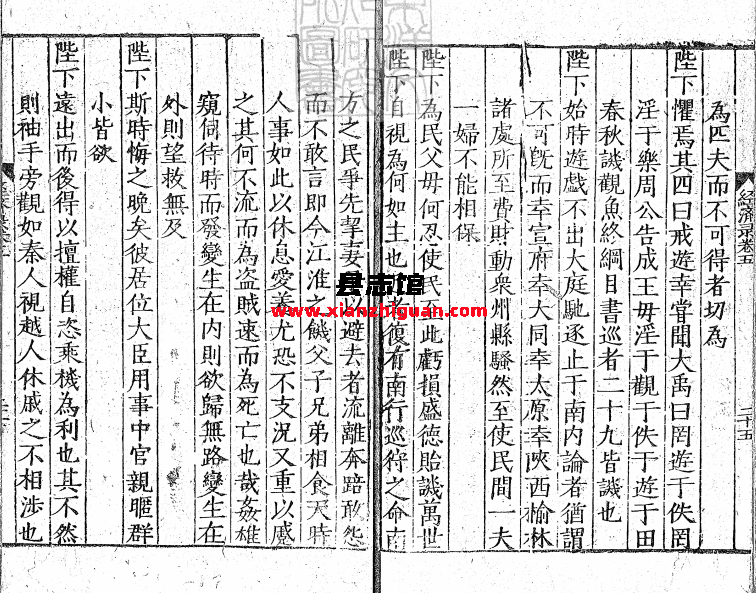 為匹夫而不可得者切為
陛下懼焉其四曰戒遊幸嘗聞大禹曰罔遊于佚罔
淫于樂周公告成王毋淫于觀于佚于遊于田
春秋譏觀魚終綱目書巡者二十九皆譏也
陛下始時遊戲不出大庭馳逐止于南内論者猶謂
不可旣而幸宣府幸大同幸太原幸陜西榆林
諸處所至費財動衆州縣騷然至使民間一夫
一婦不能相保
陛下為民父毋何忍使民至此虧損盛德貽譏萬世
陛下自視為何如主也 者復有南行巡狩之命南
方之民爭先挈妻 以避去者流離奔踣敢怨
而不敢言即今江淮之饑父子兄弟相食天時
人事如此以休息愛養尤恐不支況又重以蹙
之其何不流而為盗賊速而為死亡也哉姦雄
窺伺待時而發變生在内則欲歸無路變生在
外則望救無及
陛下斯時悔之晚矣彼居位大臣用事中官親暱群
小皆欲
陛下遠出而後得以擅權自恣乘機為利也其不然
則袖手旁觀如秦人視越人休戚之不相涉也
經濟录卷五
二十五
县志馆
www.xianzhiguan.com